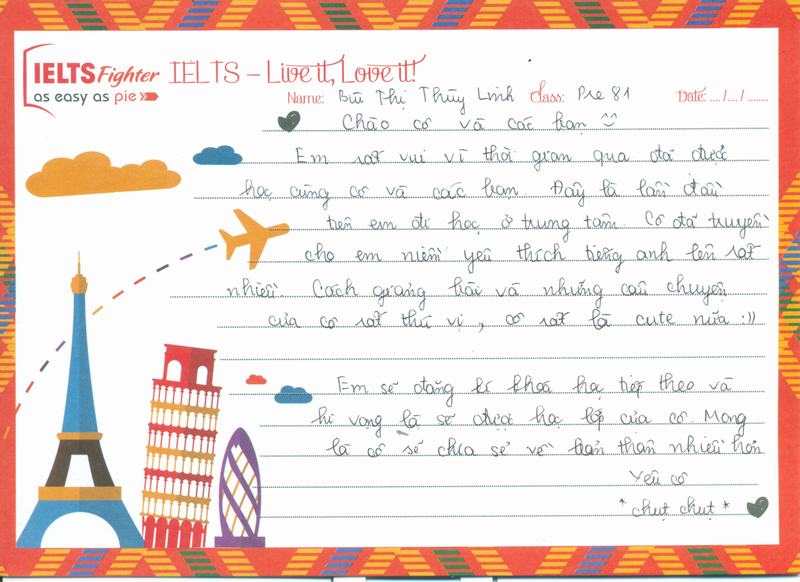 IELTS Fighter IELTS – Live it, Love it!
as easy as pie
Name: Bùi Thị Thùy Linh Class: Pre 81 Date: .... /.... / ........
Chào cô và các bạn ^^
Em rất vui vì thời gian qua đã được
học cùng cô và các bạn. Đây là lần đầu
tiên em đi học ở trung tâm. Cô đã truyền
cho em niềm yêu thích tiếng anh lên rất
nhiều. Cách giảng bài và những câu chuyện
của cô rất thú vị, cô rất là cute nữa :))
Em sẽ đăng kí khoá học tiếp theo và
hi vọng là sẽ được học lớp của cô. Mong
là cô sẽ chia sẻ về bản thân nhiều hơn
Yêu cô
* chụt chụt *